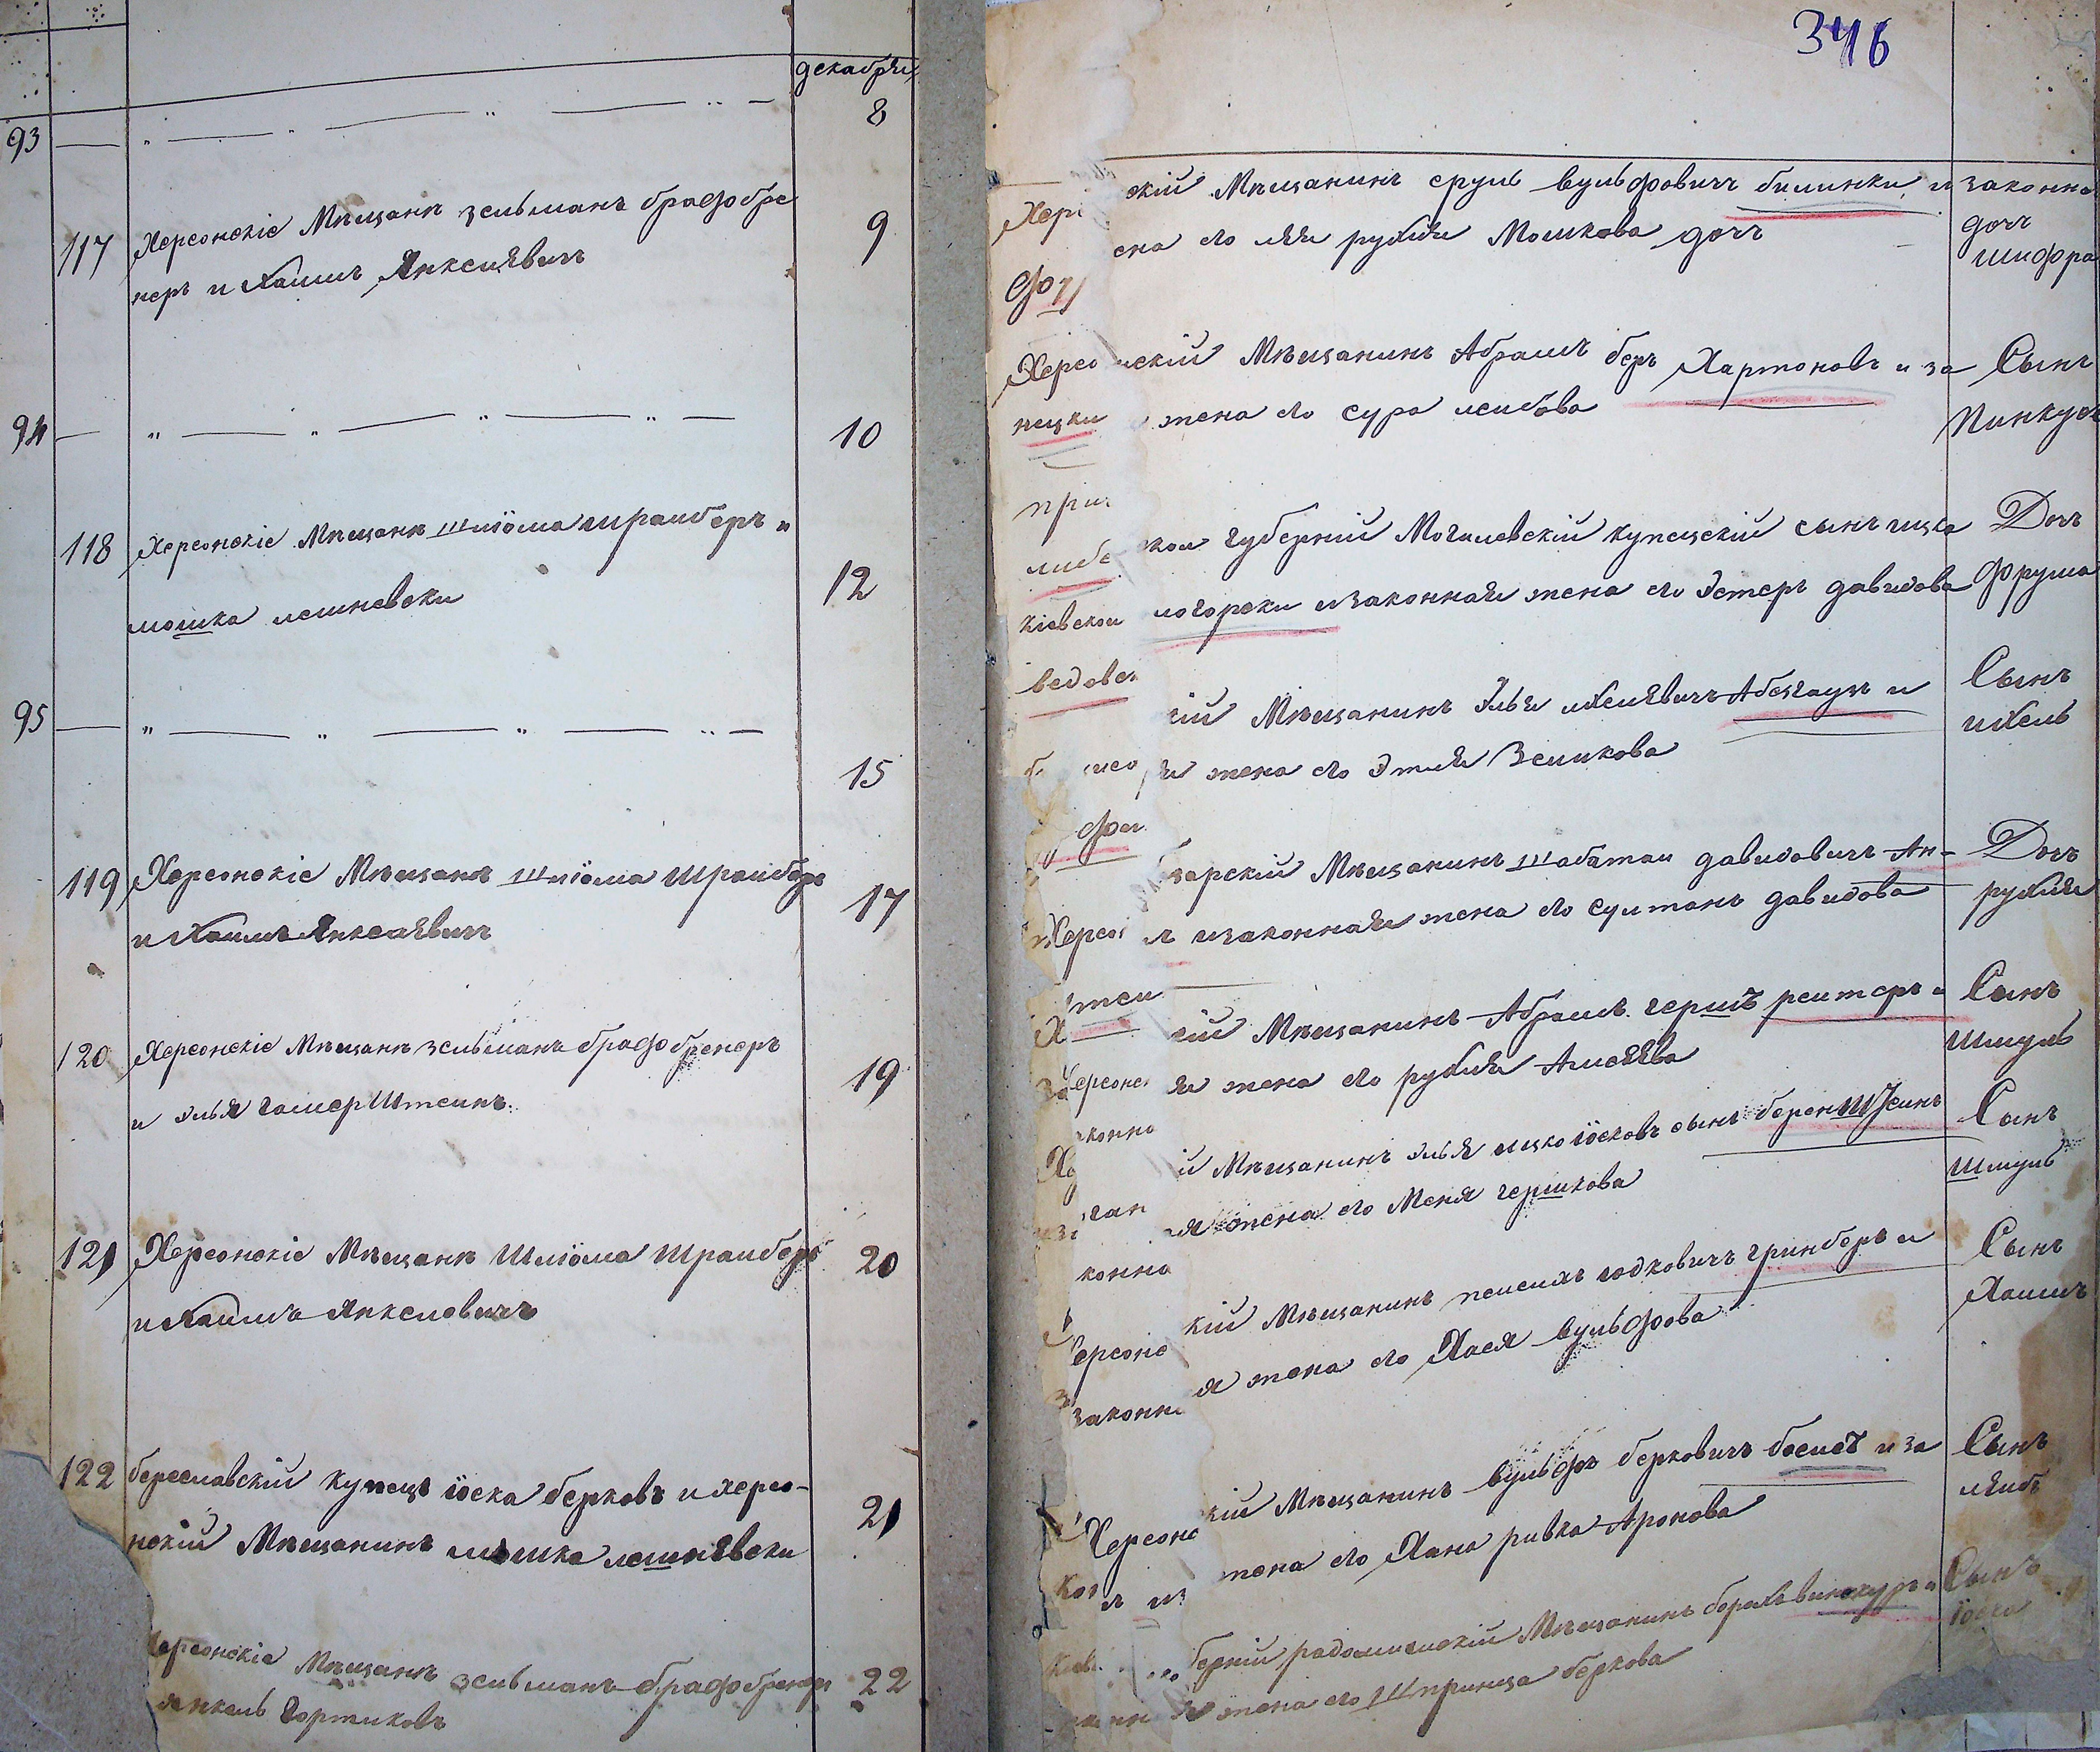 декабря
93 — „ — „ — „ — „ — 8
117 Херсонскіе Мѣщанѣ зельманъ брафобре 9
неръ и Хаимъ Янкелѣвичъ
94 — „ — „ — „ — „ — 10
118 Херсонскіе Мѣщанѣ Шліома Шраиберъ и 12
мошка лешневски
95 — „ — „ — „ — „ — 15
119 Херсонскіе Мѣщанѣ Шліома Шраиберъ 17
и Хаимъ Янкелѣвичъ
120 Херсонскіе Мѣщанѣ зельманъ брафобренеръ 19
и элья галперШтеинъ
121 Херсонскіе Мѣщанѣ Шліома Шраиберъ 20
и Хаимъ Янкелевичъ
122 береславскій купецъ іоска берковъ и херсо- 21
нскій Мѣщанинъ мошка лешнѣвски
херсонскіе Мѣщанѣ зельманъ брафобренеръ 22
янкель Гортиковъ
346
Хер скій Мѣщанинъ сруль вульфовичъ билинки и законна
ена его лея рухля Мошкова дочъ дочъ
шифра
Херсо нскій Мѣщанинъ Абрамъ беръ Хартоновъ и за Сынъ
нецки жена его сура леибова Пинкусъ
при
либе кои губерній Могилевскій купецскій сынъ ицко Дочъ
кіевскои логорски изаконная жена его Эстеръ давидова Фрума
ведов
ій Мѣщанинъ Элья ихелѣвичъ Абезгаузъ и Сынъ
я жена его Этля Зеликова ихель
зарскій Мѣщанинъ Шабатаи давидовичъ Ан- Дочъ
Херсо изаконная жена его султанъ давидова рухля
теи
кій Мѣщанинъ Абрамъ гершъ реитеръ и Сынъ
Херсонс я жена его рухля Алсеѣва Шмуль
конно
й Мѣщанинъ элья ицко іосковъ сынъ беренШтеинъ Сынъ
ган ая жена его Меня гершкова Шмуль
конна
кій Мѣщанинъ пеисихъ юдковичъ гринберъ и Сынъ
ерсоно я жена его Хася вульфова Хаимъ
законн
Херсоно кій Мѣщанинъ вульфъ берковичъ боемъ и за Сынъ
жена его Хана ривка Аронова лѣибъ
берній радомислскій Мѣщанинъ борихъ винокуръ и Сынъ
я жена его Шпринца беркова іосго